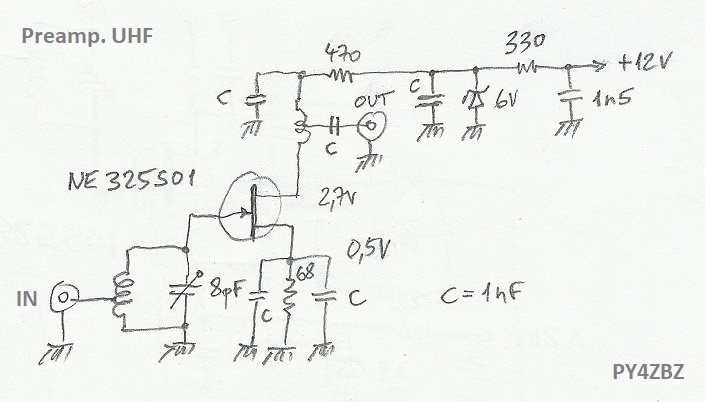 Preamp. UHF
470
330
+12V
C
C
OUT
6V
1n5
C
NE 325S01
2,7V
0,5V
IN
8pF
68
C
C
C = 1nF
PY4ZBZ